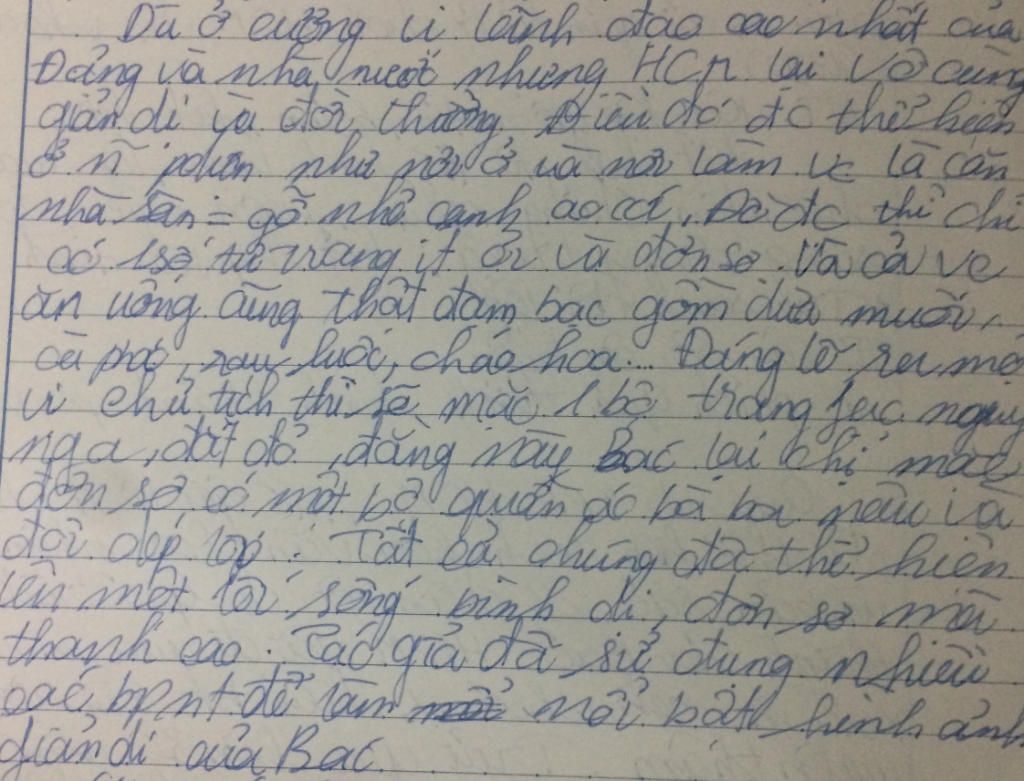 Dù ở cương vị lãnh đạo cao nhất của
Đảng và nhà nước nhưng HCM lại vô cùng
giản dị và đời thường. Điều đó đc thể hiện
ở n̄ như nơi ở và nơi làm vc là căn
nhà sàn = gỗ nhỏ cạnh ao cá. Đồ đc thì chỉ
có 1 số tư trang ít ỏi và đơn sơ. Và cả vc
ăn uống cũng thật đạm bạc gồm dưa muối,
cà pháo, rau luộc, cháo hoa... Đáng lẽ ra một
vị chủ tịch thì sẽ mặc 1 bộ trang fục nguy
nga, đắt đỏ, đằng này Bác lại chỉ mặc
đơn sơ có một bộ quần áo bà ba nâu và
đôi dép lốp. Tất cả chúng đã thể hiện
lên một lối sống bình dị, đơn sơ mà
thanh cao. Tác giả đã sử dụng nhiều
các bpnt để làm nổi bật hình ảnh
giản dị của Bác.